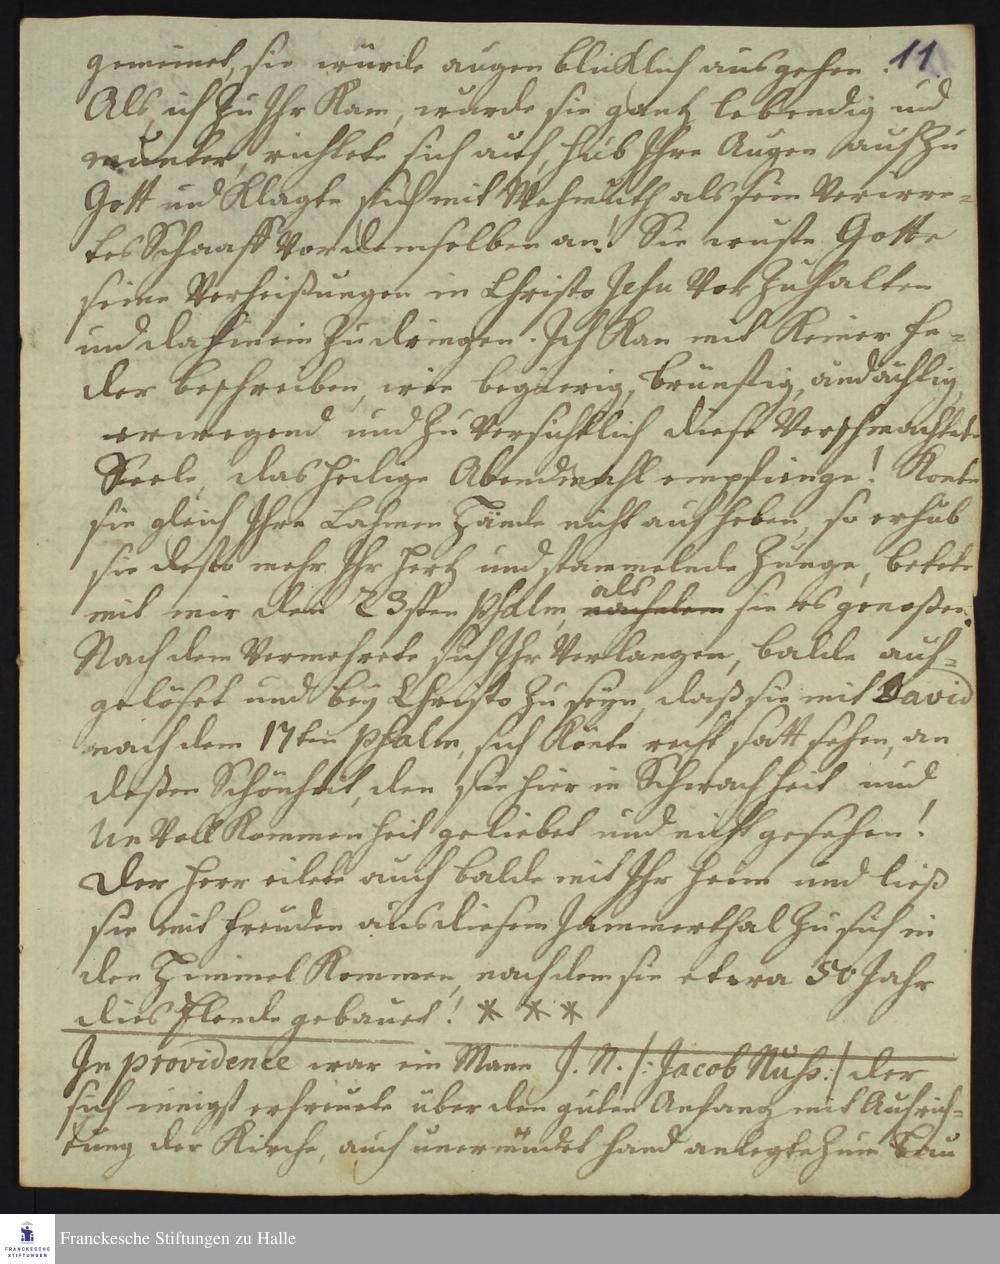 11
gemeinet, sie würde augenblicklich ausgehen.
Als ich zu Ihr Kam, wurde sie gantz lebendig und
munter, richtete sich auf, hub Ihre Augen auf zu
Gott und Klagte sich mit Wehmuth als sein verirre=
tes Schaaff vor demselben an! Sie wuste Gotte
seine Verheißungen in Christo Jesu vor zu halten
und dahinein zu dringen. Ich Kan mit Keiner Fe=
der beschreiben, wie begierig, brünstig, andächtig,
erwegend und zuversichtlich diese Verschmachtete
Seele, das heilige Abendmahl empfienge! Konte
sie gleich Ihre Lahmen Hände nicht aufheben, so erhub
sie desto mehr Ihr Hertz und stammelnde Zunge, betete
mit mir den 23sten Psalm, nachdem als sie es genoßen.
Nach dem vermehrete sich Ihr Verlangen, balde auf=
gelöset und bey Christo zu seyn, daß sie mit David
nach dem 17ten Psalm, sich Könte recht satt sehen, an
deßen Schönheit, den sie hier in Schwachheit und
Unvollkommenheit geliebet und nicht gesehen!
Der Herr eilete auch balde mit Ihr heim und ließ
sie mit Freuden aus diesem Jammerthal zu sich in
den Himmel Kommen, nachdem sie etwa 50 Jahr
dies Elende gebauet! * * *
In providence war ein Mann J. N. /: Jacob Nuss :/ der
sich innigst erfreuete über den guten Anfang mit Aufrich=
tung der Kirche, auch unermüdet Hand anlegte zum Bau
FRANCKESCHE
STIFTUNGEN
Franckesche Stiftungen zu Halle